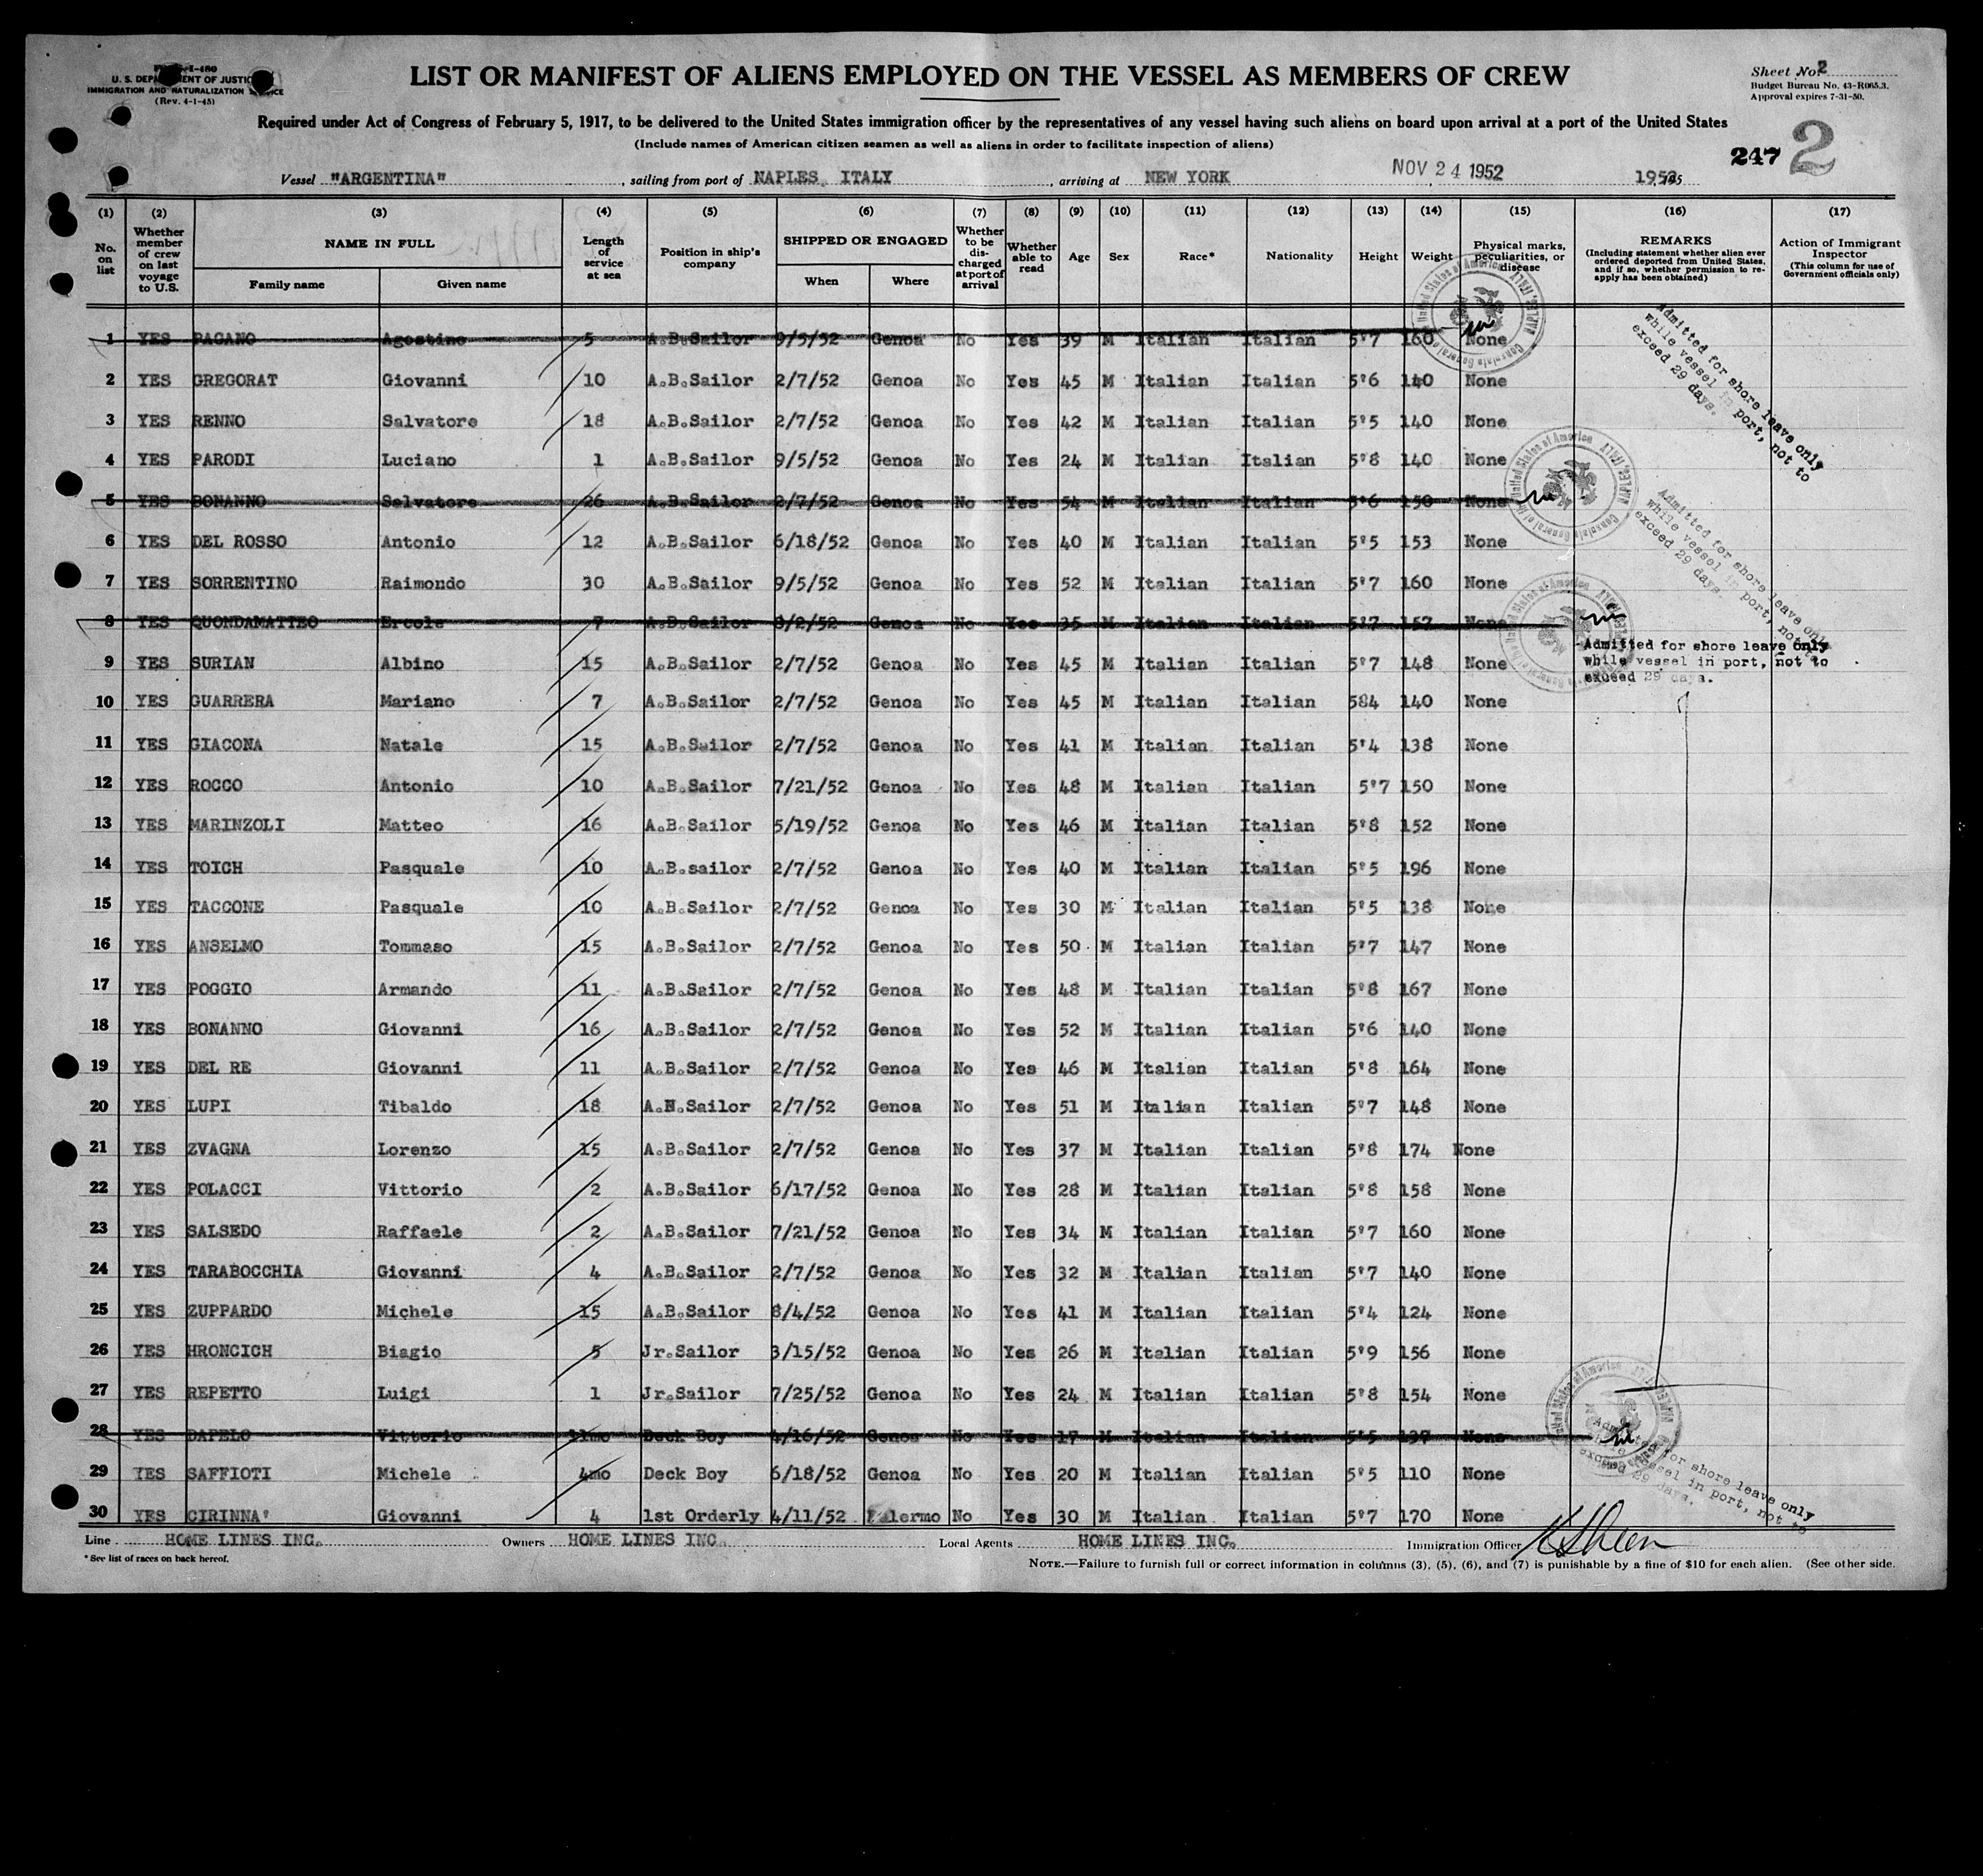 Form I-480
U. S. DEPARTMENT OF JUSTICE
IMMIGRATION AND NATURALIZATION SERVICE
(Rev. 4-1-45)
LIST OR MANIFEST OF ALIENS EMPLOYED ON THE VESSEL AS MEMBERS OF CREW
Sheet No. 2
Budget Bureau No. 43-R065.3.
Approval expires 7-31-50.
Required under Act of Congress of February 5, 1917, to be delivered to the United States immigration officer by the representatives of any vessel having such aliens on board upon arrival at a port of the United States
(Include names of American citizen seamen as well as aliens in order to facilitate inspection of aliens)
247 2
Vessel "ARGENTINA", sailing from port of NAPLES, ITALY, arriving at NEW YORK NOV 24 1952 1952
(1) (2) (3) (4) (5) (6) (7) (8) (9) (10) (11) (12) (13) (14) (15) (16) (17)
No. on list
Whether member of crew on last voyage to U.S.
NAME IN FULL
Family name
Given name
Length of service at sea
Position in ship's company
SHIPPED OR ENGAGED
When
Where
Whether to be discharged at port of arrival
Whether able to read
Age
Sex
Race*
Nationality
Height
Weight
Physical marks, peculiarities, or disease
REMARKS
(Including statement whether alien ever ordered deported from United States, and if so, whether permission to reapply has been obtained)
Action of Immigrant Inspector
(This column for use of Government officials only)
1 YES PAGANO Agostino 5 A.B.Sailor 9/5/52 Genoa No Yes 39 M Italian Italian 5'7 160 None
2 YES GREGORAT Giovanni 10 A.B.Sailor 2/7/52 Genoa No Yes 45 M Italian Italian 5'6 140 None
3 YES RENNO Salvatore 18 A.B.Sailor 2/7/52 Genoa No Yes 42 M Italian Italian 5'5 140 None
4 YES PARODI Luciano 1 A.B.Sailor 9/5/52 Genoa No Yes 24 M Italian Italian 5'8 140 None
5 YES BONANNO Salvatore 26 A.B.Sailor 2/7/52 Genoa No Yes 54 M Italian Italian 5'6 150 None
6 YES DEL ROSSO Antonio 12 A.B.Sailor 6/18/52 Genoa No Yes 40 M Italian Italian 5'5 153 None
7 YES SORRENTINO Raimondo 30 A.B.Sailor 9/5/52 Genoa No Yes 52 M Italian Italian 5'7 160 None
8 YES QUONDAMATTEO Ercole 7 A.B.Sailor 8/2/52 Genoa No Yes 35 M Italian Italian 5'7 157 None
9 YES SURIAN Albino 15 A.B.Sailor 2/7/52 Genoa No Yes 45 M Italian Italian 5'7 148 None
10 YES GUARRERA Mariano 7 A.B.Sailor 2/7/52 Genoa No Yes 45 M Italian Italian 584 140 None
11 YES GIACONA Natale 15 A.B.Sailor 2/7/52 Genoa No Yes 41 M Italian Italian 5'4 138 None
12 YES ROCCO Antonio 10 A.B.Sailor 7/21/52 Genoa No Yes 48 M Italian Italian 5'7 150 None
13 YES MARINZOLI Matteo 16 A.B.Sailor 5/19/52 Genoa No Yes 46 M Italian Italian 5'8 152 None
14 YES TOICH Pasquale 10 A.B.sailor 2/7/52 Genoa No Yes 40 M Italian Italian 5'5 196 None
15 YES TACCONE Pasquale 10 A.B.Sailor 2/7/52 Genoa No Yes 30 M Italian Italian 5'5 138 None
16 YES ANSELMO Tommaso 15 A.B.Sailor 2/7/52 Genoa No Yes 50 M Italian Italian 5'7 147 None
17 YES POGGIO Armando 11 A.B.Sailor 2/7/52 Genoa No Yes 48 M Italian Italian 5'8 167 None
18 YES BONANNO Giovanni 16 A.B.Sailor 2/7/52 Genoa No Yes 52 M Italian Italian 5'6 140 None
19 YES DEL RE Giovanni 11 A.B.Sailor 2/7/52 Genoa No Yes 46 M Italian Italian 5'8 164 None
20 YES LUPI Tibaldo 18 A.N.Sailor 2/7/52 Genoa No Yes 51 M Italian Italian 5'7 148 None
21 YES ZVAGNA Lorenzo 15 A.B.Sailor 2/7/52 Genoa No Yes 37 M Italian Italian 5'8 174 None
22 YES POLACCI Vittorio 2 A.B.Sailor 6/17/52 Genoa No Yes 28 M Italian Italian 5'8 158 None
23 YES SALSEDO Raffaele 2 A.B.Sailor 7/21/52 Genoa No Yes 34 M Italian Italian 5'7 160 None
24 YES TARABOCCHIA Giovanni 4 A.B.Sailor 2/7/52 Genoa No Yes 32 M Italian Italian 5'7 140 None
25 YES ZUPPARDO Michele 15 A.B.Sailor 8/4/52 Genoa No Yes 41 M Italian Italian 5'4 124 None
26 YES HRONCICH Biagio 5 Jr.Sailor 3/15/52 Genoa No Yes 26 M Italian Italian 5'9 156 None
27 YES REPETTO Luigi 1 Jr.Sailor 7/25/52 Genoa No Yes 24 M Italian Italian 5'8 154 None
28 YES DAPELO Vittorio 11mo Deck Boy 4/16/52 Genoa No Yes 17 M Italian Italian 5'5 137 None
29 YES SAFFIOTI Michele 4mo Deck Boy 6/18/52 Genoa No Yes 20 M Italian Italian 5'5 110 None
30 YES CIRINNA' Giovanni 4 1st Orderly 4/11/52 Palermo No Yes 30 M Italian Italian 5'7 170 None
Admitted for shore leave only
while vessel in port, not to
exceed 29 days.
Admitted for shore leave only
while vessel in port, not to
exceed 29 days.
Admitted for shore leave only
while vessel in port, not to
exceed 29 days.
Admitted for shore leave only
while vessel in port, not to
exceed 29 days.
Consulate General of the United States of America NAPLES, ITALY
Consulate General of the United States of America NAPLES, ITALY
Consulate General of the United States of America NAPLES, ITALY
Consulate General of the United States of America NAPLES, ITALY
Line HOME LINES INC. Owners HOME LINES INC. Local Agents HOME LINES INC. Immigration Officer
* See list of races on back hereof.
NOTE.—Failure to furnish full or correct information in columns (3), (5), (6), and (7) is punishable by a fine of $10 for each alien. (See other side.